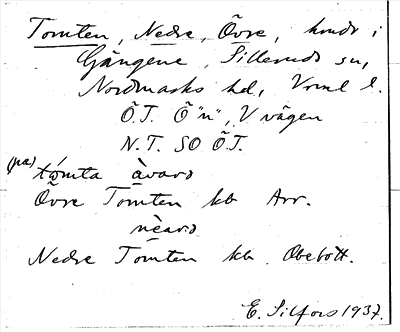 Tomten, Nedre, Övre, hmdr i
Gängene, Silleruds sn,
Nordmarks hd, Vrml l.
Ö.T. Ö "n", V vägen
N.T. SO Ö.T.
(pæ) tómta àvars
Övre Tomten kb Arr.
nèars
Nedre Tomten kb Obebott.
E. Silfors 1937.